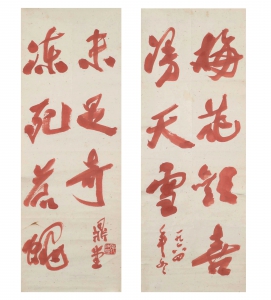 梅花歡喜
漫天雪
一九六四
年冬
凍死蒼蠅
未足奇
鼎堂